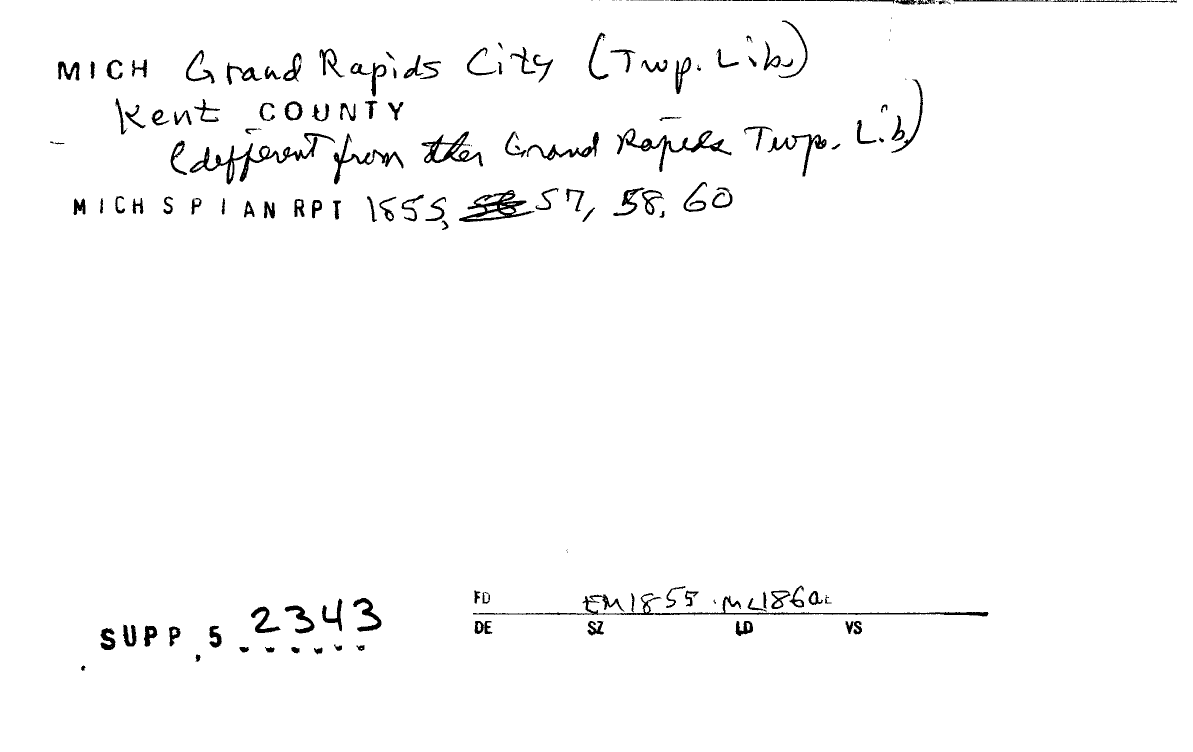 MICH Grand Rapids City (Twp. Lib.)
Kent COUNTY
(different from the Grand Rapids Twp. Lib.)
MICH S P I AN RPT 1855, 57, 58, 60
FD EM1855 ML186
SUPP, 5 2343
DE SZ LD VS